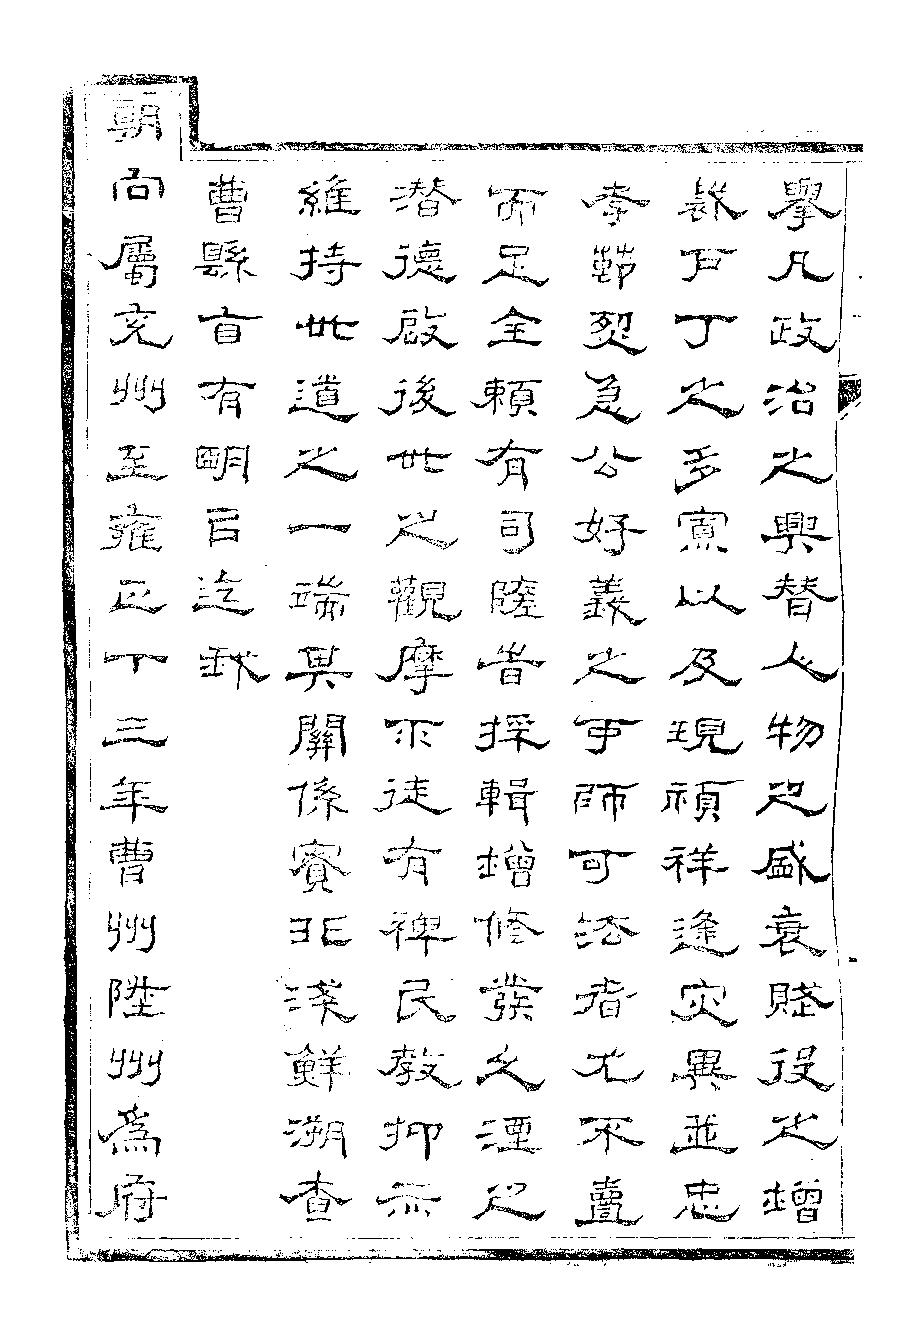 舉凡政治之興替人物之盛衰賦役之增
裁戶丁之多寡以及現禎祥逢灾異並忠
孝節烈急公好義之事師可法者尤不盡
而足全賴有司隨昔採輯增修發久湮之
潜德啟後世之觀摩不徒有裨民教抑亦
維持世道之一端其關係實非淺鮮溯查
曹縣盲有明以迄我
朝向屬兖州至雍正丁三年曹州陞州為府